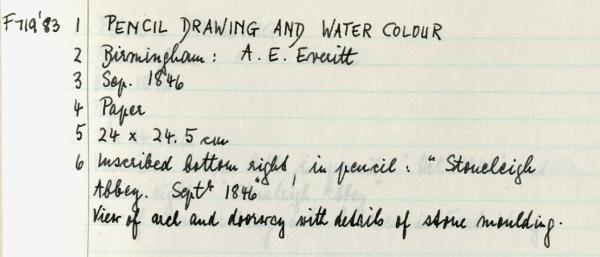 F719'83 1 PENCIL DRAWING AND WATER COLOUR
2 Birmingham: A. E. Everitt
3 Sep. 1846
4 Paper
5 24 x 24.5 cm
6 Inscribed bottom right, in pencil: "Stoneleigh
Abbey. Septr 1846"
View of arch and doorway with details of stone moulding.